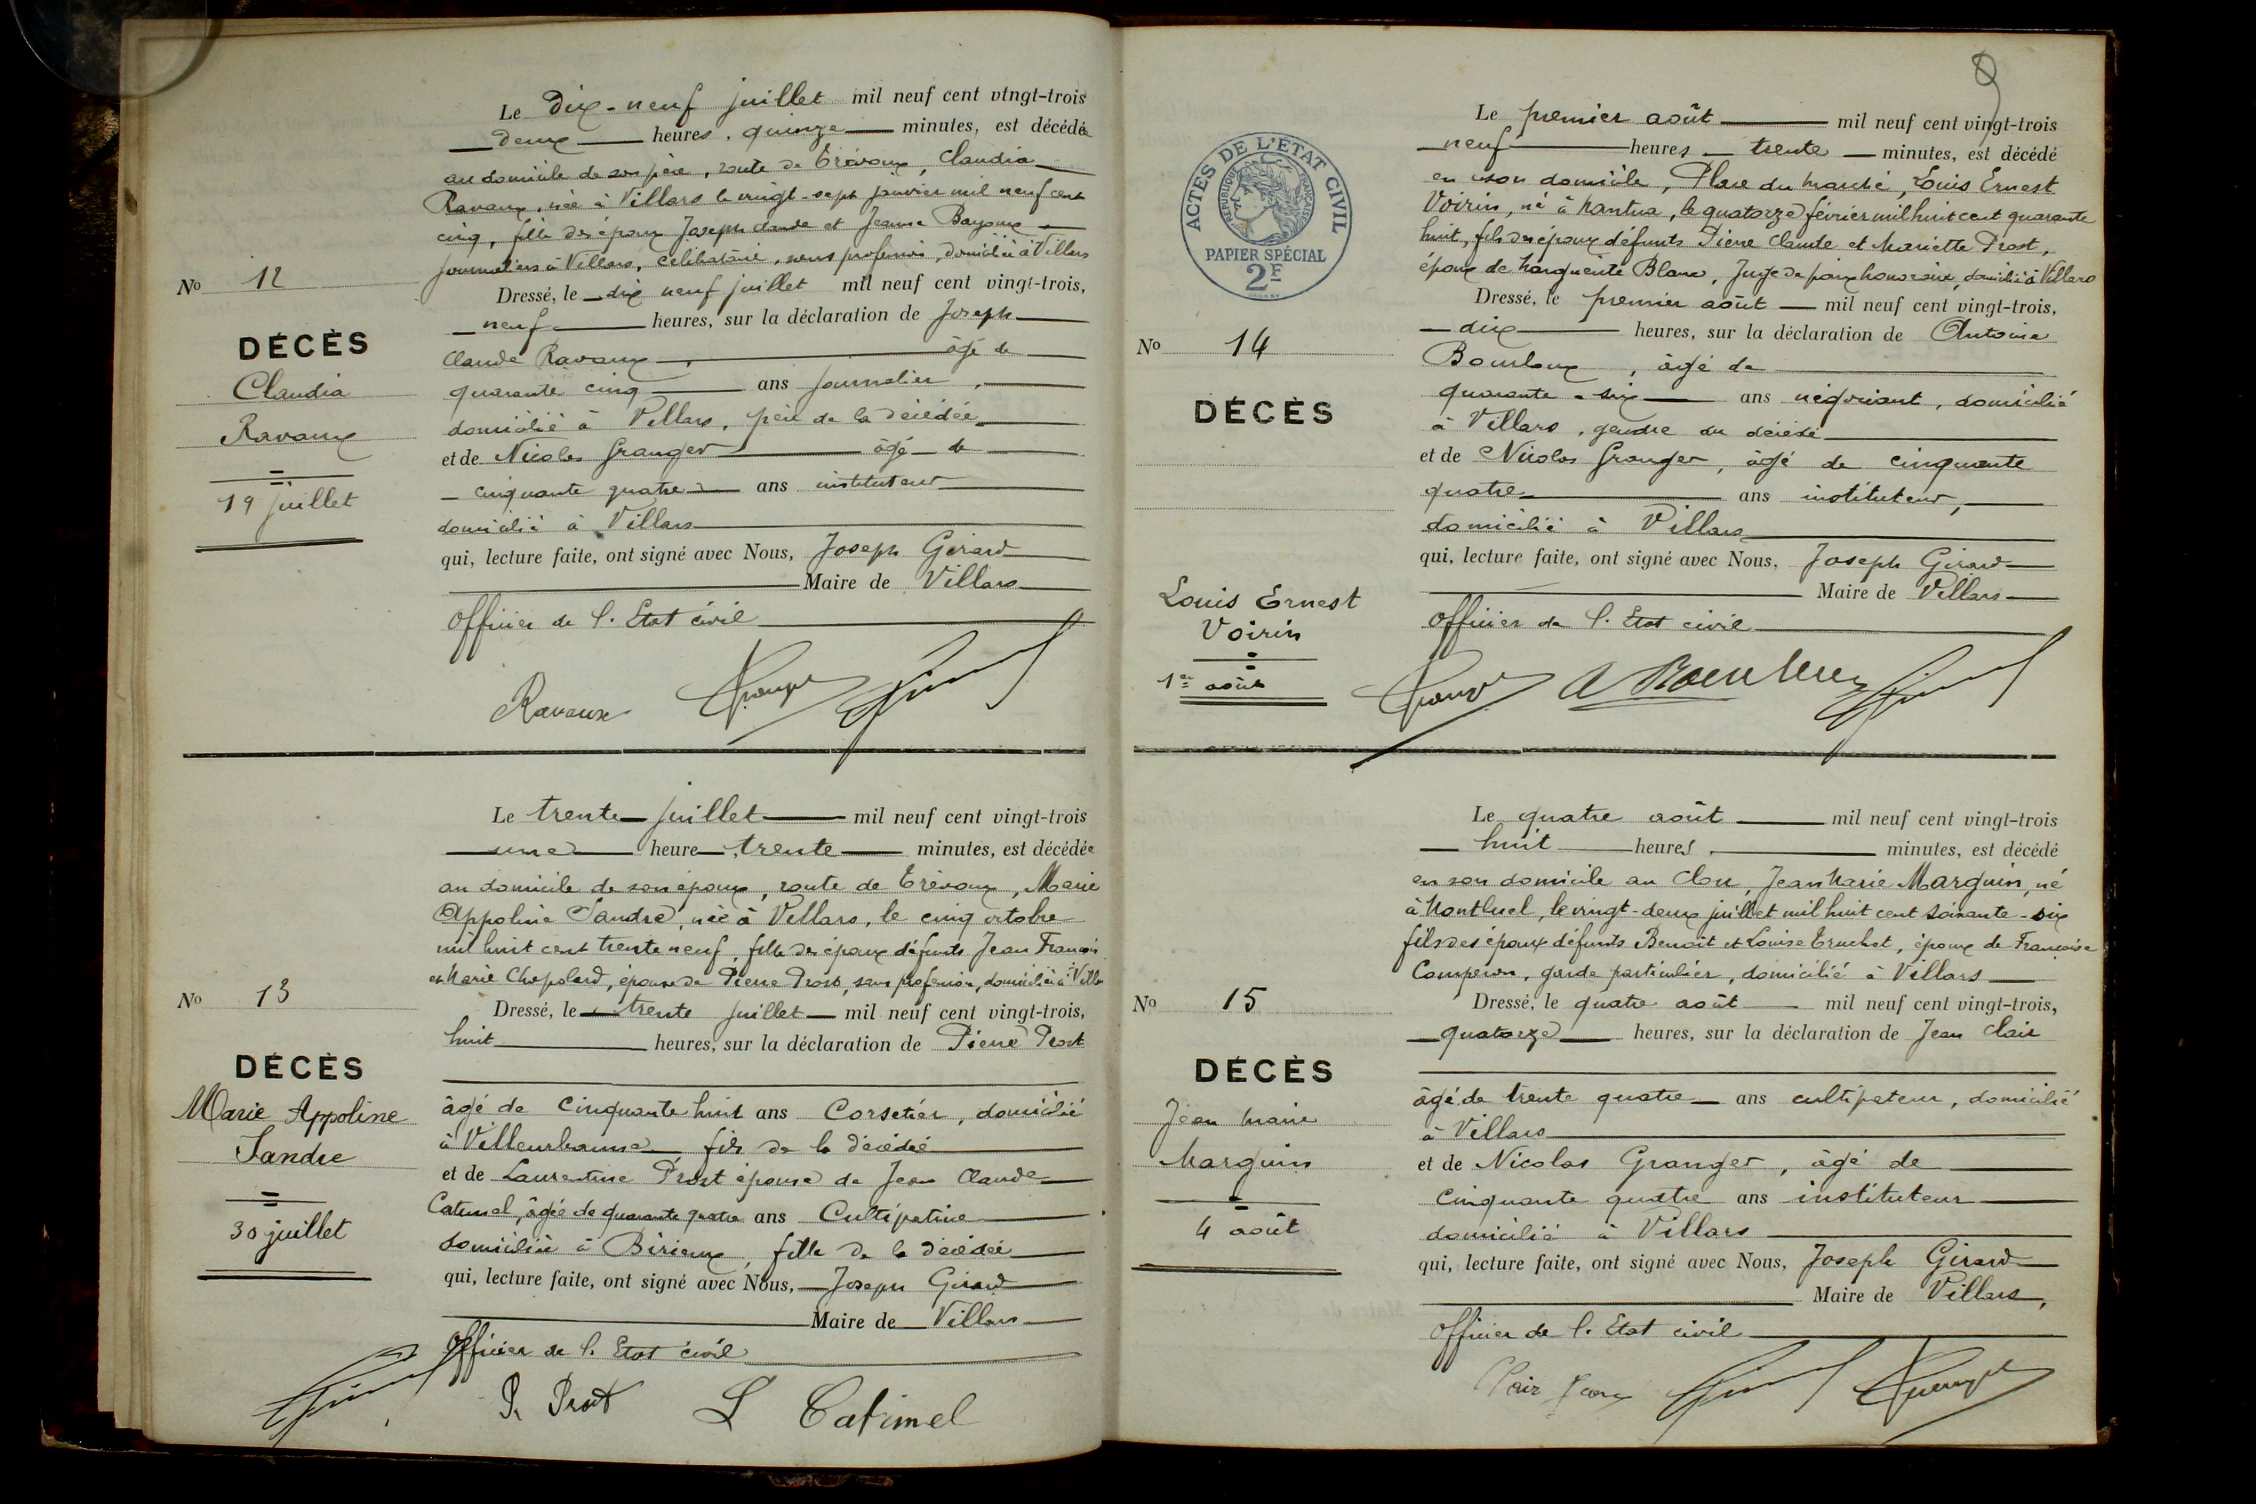 Le dix-neuf juillet mil neuf cent vingt-trois
deux heures, quinze minutes, est décédée
au domicile de son père, route de Trévoux, Claudia
Ravaux, née à Villars le vingt-sept janvier mil neuf cent
cinq, fille des époux Joseph Claude et Jeanne
journaliers à Villars, célibataire, sans profession, domiciliée à Villars
No 12
DÉCÈS
Claudia
Ravaux
19 juillet
Dressé, le dix neuf juillet mil neuf cent vingt-trois,
neuf heures, sur la déclaration de Joseph
Claude Ravaux, âgé de
quarante cinq ans journalier,
domicilié à Villars, père de la décédée
et de Nicolas Granger âgé de
cinquante quatre ans instituteur
domicilié à Villars
qui, lecture faite, ont signé avec Nous, Joseph Girard
Maire de Villars
Officier de l'Etat civil
Ravaux Granger
Le trente juillet mil neuf cent vingt-trois
une heure trente minutes, est décédée
au domicile de son époux, route de Trévoux, Marie
Appoline Sandre, née à Villars, le cinq octobre
mil huit cent trente neuf, fille des époux défunts Jean François
et Marie Chapoland, épouse de Pierre Prost, sans profession, domiciliée à Villars
No 13
DÉCÈS
Marie Appoline
Sandre
30 juillet
Dressé, le trente juillet mil neuf cent vingt-trois,
huit heures, sur la déclaration de Pierre Prost
âgé de cinquante huit ans Corsetier, domicilié
à Villeurbanne fils de la décédée
et de Laurentine Prost épouse de Jean Claude
Catimel, âgée de quarante quatre ans Cultivatrice
domiciliée à Birieux, fille de la décédée
qui, lecture faite, ont signé avec Nous, Joseph Girard
Maire de Villars
Officier de l'Etat civil
P. Prost L Catimel
9
ACTES DE L'ETAT CIVIL
RÉPUBLIQUE FRANÇAISE
PAPIER SPÉCIAL
2F
Le premier août mil neuf cent vingt-trois
neuf heures trente minutes, est décédé
en son domicile, Place du marché, Louis Ernest
Voirin, né à Nantua, le quatorze février mil huit cent quarante
huit, fils des époux défunts Pierre Claude et Mariette Prost,
époux de Marguerite Blanc, Juge de paix honoraire, domicilié à Villars
No 14
DÉCÈS
Louis Ernest
Voirin
1er août
Dressé, le premier août mil neuf cent vingt-trois,
dix heures, sur la déclaration de Antoine
Bourloux, âgé de
quarante-six ans négociant, domicilié
à Villars, gendre du décédé
et de Nicolas Granger, âgé de cinquante
quatre ans instituteur,
domicilié à Villars
qui, lecture faite, ont signé avec Nous, Joseph Girard
Maire de Villars
Officier de l'Etat civil
Le quatre août mil neuf cent vingt-trois
huit heures, minutes, est décédé
en son domicile au Clou, Jean Marie Marguin, né
à Montluel, le vingt-deux juillet mil huit cent soixante-six
fils des époux défunts Benoît et Louise Truchet, époux de Françoise
Comperon, garde particulier, domicilié à Villars
No 15
DÉCÈS
Jean Marie
Marguin
4 août
Dressé, le quatre août mil neuf cent vingt-trois,
quatorze heures, sur la déclaration de Jean Clair
âgé de trente quatre ans cultivateur, domicilié
à Villars
et de Nicolas Granger, âgé de
cinquante quatre ans instituteur
domicilié à Villars
qui, lecture faite, ont signé avec Nous, Joseph Girard
Maire de Villars,
Officier de l'Etat civil
Clair Jean